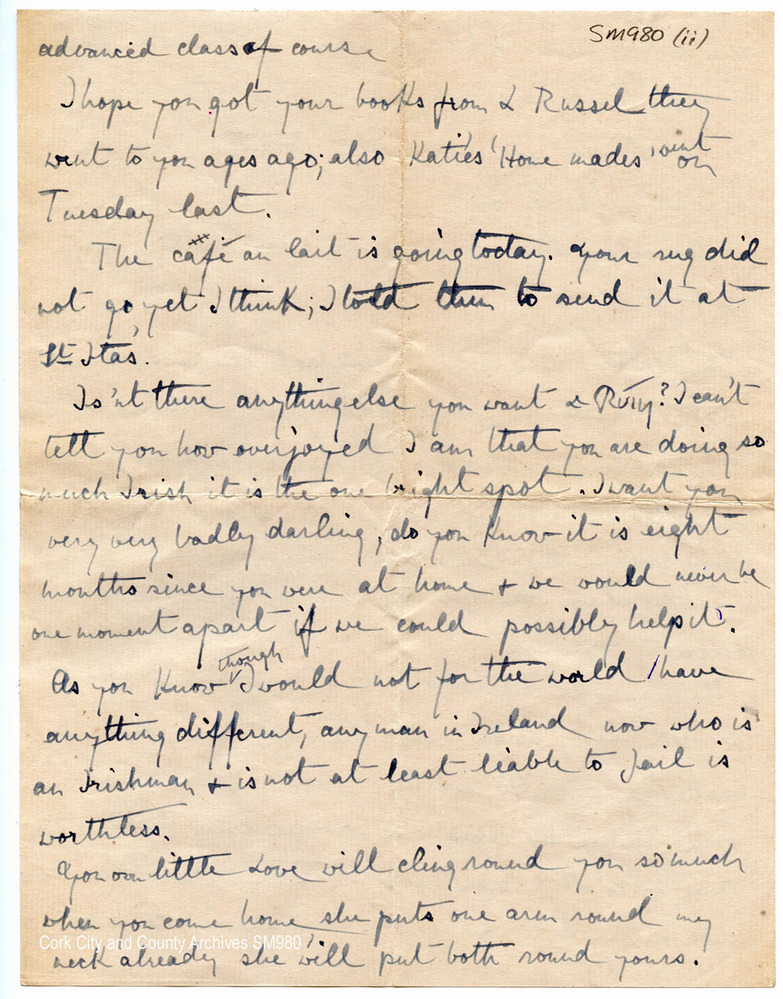 SM980 (ii)
advanced class of course
I hope you got your books from L Russel they
went to you ages ago; also Katie's 'Home mades' went on
Tuesday last.
The café au lait is going today. Your rug did
not go, yet I think; I told them to send it at
St Itas.
Is'nt there anything else you want & Rúrý? I can't
tell you how overjoyed I am that you are doing so
much Irish it is the one bright spot. I want you
very very badly darling, do you know it is eight
months since you were at home & we would never be
one moment apart if we could possibly help it.
As you know though I would not for the world have
anything different, any man in Ireland now who is
an Irishman & is not at least liable to jail is
worthless.
Your own little Love will cling round you so much
when you come home, she puts one arm round my
neck already she will put both round yours.
Cork City and County Archives SM980